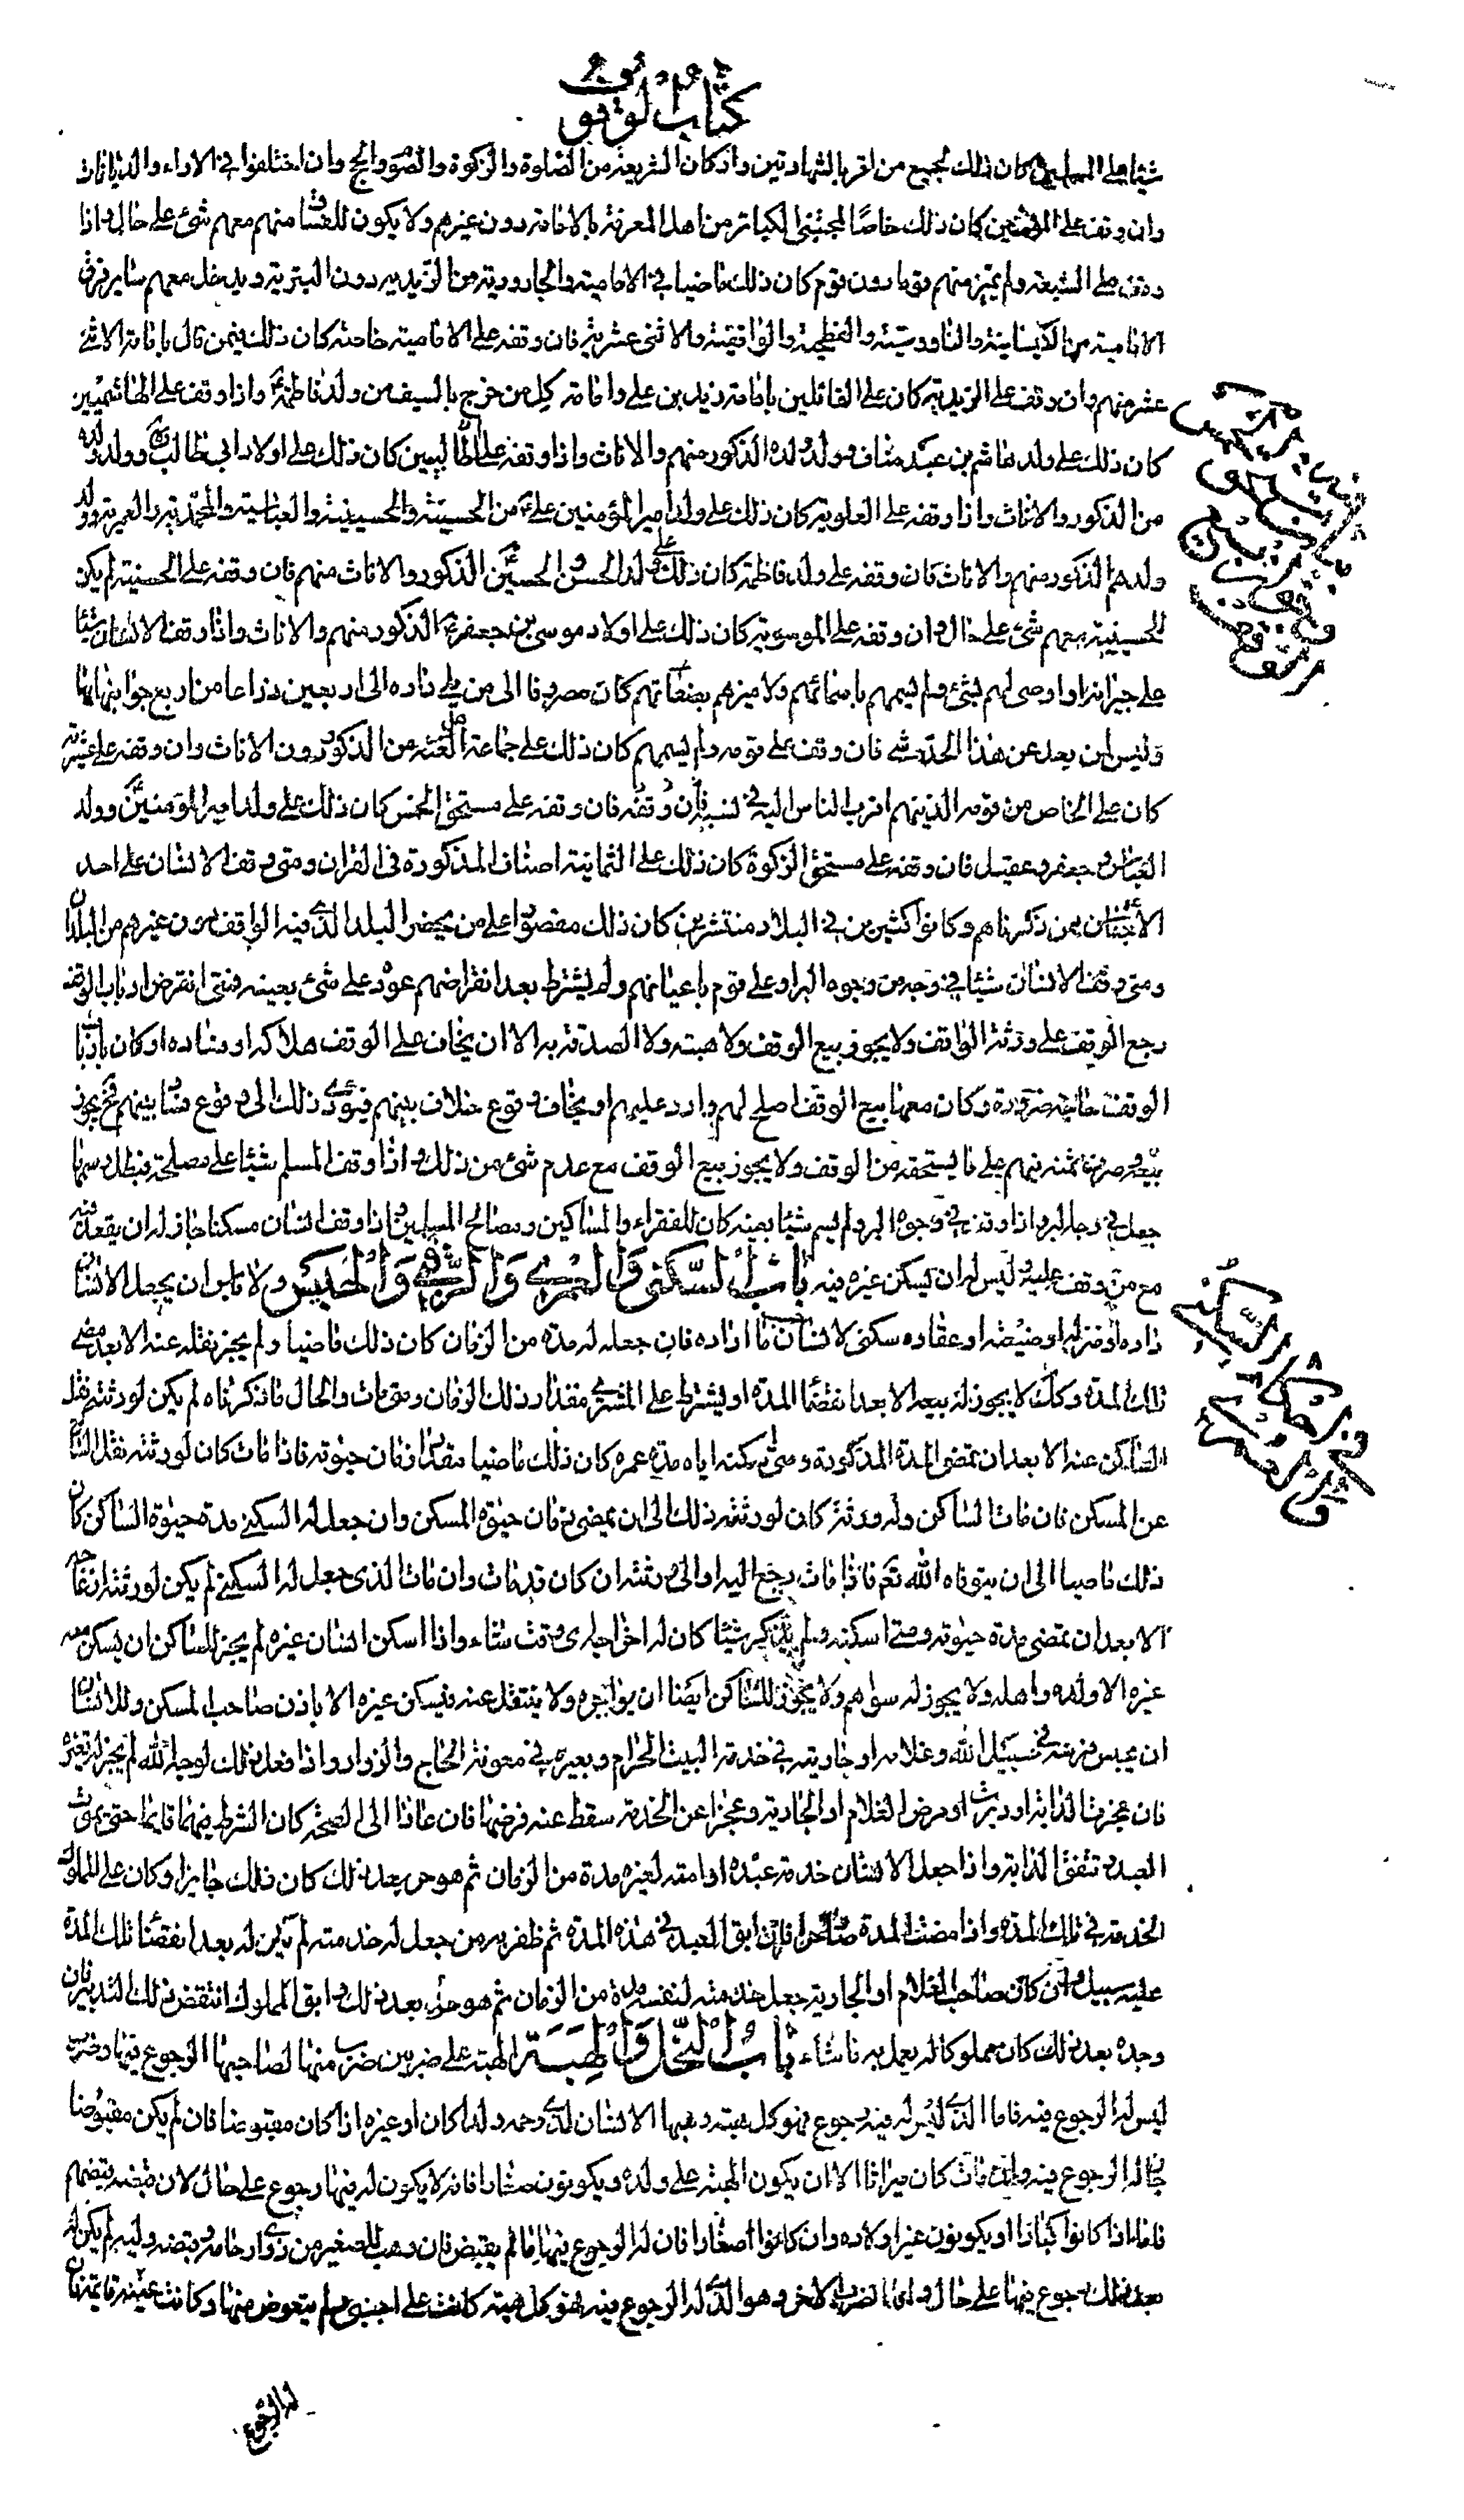 كتاب الوقوف
شيئا على المسلمين كان ذلك لجميع من اقر بالشهادتين واركان الشريعة من الصلوة والزكوة والصوم والحج وان اختلفوا فى الاراء والديانات
وان وقف على المؤمنين كان ذلك خاصا لمجتنبى الكبائر من اهل المعرفة بالامامة دون غيرهم ولا يكون للفساق منهم معهم شئ على حال واذا
وقف على الشيعة ولم يميز منهم قوما دون قوم كان ذلك ماضيا فى الامامية والجارودية من الزيدية دون البترية ويدخل معهم ساير فرق
الامامية من الكيسانية والناووسية والفطحية والواقفية والاثنى عشرية فان وقفه على الامامية خاصة كان ذلك فيمن قال بامامة الاثنى
عشر منهم وان وقف على الزيدية كان على القائلين بامامة زيد بن على وامامة كل من خرج بالسيف من ولد فاطمة ع واذا وقف على الهاشميين
كان ذلك على ولد هاشم بن عبد مناف وولد ولده الذكور منهم والاناث واذا وقفه على الطالبيين كان ذلك على اولاد ابى طالب وولد ولده
من الذكور والاناث واذا وقفه على العلوية كان ذلك على ولد امير المؤمنين على ع من الحسنية والحسينية والعباسية والمحمدية والعمرية وولد
ولدهم الذكور منهم والاناث فان وقفه على ولد فاطمة كان ذلك على ولد الحسن والحسين الذكور والاناث منهم فان وقفه على الحسنية لم يكن
للحسينية معهم شئ على حال وان وقفه على الموسوية كان ذلك على اولاد موسى بن جعفر ع الذكور منهم والاناث واذا وقف الانسان شيئا
على جيرانه او اوصى لهم بشئ ولم يسمهم باسمائهم ولا ميزهم بصفاتهم كان مصروفا الى من يلى داره الى اربعين ذراعا من اربع جوانبها
وليس لمن بعد عن هذا الحد شئ فان وقف على قومه ولم يسمهم كان ذلك على جماعة اهل لغته من الذكور دون الاناث وان وقفه على عشيرته
كان على الخاص من قومه الذينهم اقرب الناس اليه فى نسبه فان وقفه على مستحق الخمس كان ذلك على ولد امير المؤمنين وولد
العباس وجعفر وعقيل فان وقفه على مستحق الزكوة كان ذلك على الثمانية اصناف المذكورة فى القران ومتى وقف الانسان على احد
الاجناس ممن ذكرناهم وكانوا كثيرين فى البلاد منتشرين كان ذلك مقصورا على من يحضر البلد الذى فيه الوقف دون غيرهم من البلدان
ومتى وقف الانسان شيئا فى وجه من وجوه البر او على قوم باعيانهم ولم يشترط بعد انقراضهم عوده على شئ بعينه فمتى انقرض ارباب الوقف
رجع الوقف على ورثة الواقف ولا يجوز بيع الوقف ولا هبته ولا الصدقة به الا ان يخاف على الوقف هلاكه او فساده او كان بارباب
الوقف حاجة ضرورة وكان معها بيع الوقف اصلح لهم وارد عليهم او يخاف وقوع خلاف بينهم فيؤدى ذلك الى وقوع فساد بينهم فح يجوز
بيعه وصرف ثمنه فيهم على ما يستحقه من الوقف ولا يجوز بيع الوقف مع عدم شئ من ذلك واذا وقف المسلم شيئا على مصلحة فبطل رسمها
جعل فى وجه البر واذا وقف فى وجوه البر ولم يسم شيئا بعينه كان للفقراء والمساكين ومصالح المسلمين واذا وقف انسان مسكنا جاز له ان يقعد فيه
مع من وقف عليه وليس له ان يسكن غيره فيه باب السكنى والعمرى والرقبى والحبيس ولا باس ان يجعل الانسان
داره او منزله او ضيعته او عقاره سكنى لانسان ما اراده فان جعله له مدة من الزمان كان ذلك ماضيا ولم يجز نقله عنه الا بعد مضى
تلك المدة وكك لا يجوز له بيعه الا بعد انقضاء المدة او يشترط على المشترى مقدار ذلك الزمان ومتى مات والحال ما ذكرناه لم يكن لورثته نقل
الساكن عنه الا بعد ان تمضى المدة المذكورة ومتى اسكنه اياه مدة عمره كان ذلك ماضيا مقدار زمان حيوته فاذا مات كان لورثته نقل الساكن
عن المسكن فان مات الساكن وله ورثة كان لورثته ذلك الى ان يمضى زمان حيوة المسكن وان جعل له السكنى مدة حيوة الساكن كان
ذلك ماضيا الى ان يتوفاه الله تعم فاذا مات رجع اليه او الى ورثته ان كان قد مات وان مات الذى جعل له السكنى لم يكن لورثته ازعاجه
الا بعد ان تمضى مدة حيوته ومتى اسكنه ولم يذكر شيئا كان له اخراجه اى وقت شاء واذا اسكن انسان غيره لم يجز للساكن ان يسكن معه
غيره الا ولده واهله ولا يجوز له سواهم ولا يجوز للساكن ايضا ان يواجره ولا ينتقل عنه فيسكن غيره الا باذن صاحب المسكن وللانسان
ان يحبس فرسه فى سبيل الله وغلامه او جاريته فى خدمة البيت الحرام وبعيره فى معونة الحاج والزوار واذا فعل ذلك لوجه الله لم يجز له تغييره
فان عجزت الدابة او دبرت او مرض الغلام او الجارية وعجزا عن الخدمة سقط عنه فرضها فان عادا الى الصحة كان الشرط فيهما قائما حتى يموت
العبد وتنفق الدابة واذا جعل الانسان خدمة عبده او امته لغيره مدة من الزمان ثم هو حر بعد ذلك كان ذلك جايزا وكان على المملوك
الخدمة فى تلك المدة واذا مضت المدة صار حرا فان ابق العبد فى هذه المدة ثم ظفر به من جعل له خدمته لم يكن له بعد انقضاء تلك المدة
عليه سبيل وان كان صاحب الغلام او الجارية جعل خدمته لنفسه مدة من الزمان ثم هو حر بعد ذلك وابق المملوك انتقض ذلك التدبير فان
وجده بعد ذلك كان مملوكا له يعمل به ما شاء باب النحل والهبة الهبة على ضربين ضرب منها لصاحبها الرجوع فيها وضرب
ليس له الرجوع فيه فاما الذى ليس له فيه رجوع فهو كل هبة وهبها الانسان لذى رحمه ولدا كان او غيره اذا كان مقبوضا فان لم يكن مقبوضا
جاز له الرجوع فيه وان مات كان ميراثا الا ان يكون الهبة على ولده ويكونون صغارا فانه لا يكون له فيها رجوع على حال لان قبضه قبضهم
فاما اذا كانوا كبارا او يكونون غير اولاده وان كانوا صغارا فان له الرجوع فيها ما لم يقبض فان وهب للصغير من ذوى ارحامه وقبضه وليه لم يكن له
بعد ذلك رجوع فيها على حال واما الضرب الاخر وهو الذى له الرجوع فيه فهو كل هبة كانت على اجنبى ولم يتعوض منها وكانت عينه قائمة فان
له الرجوع